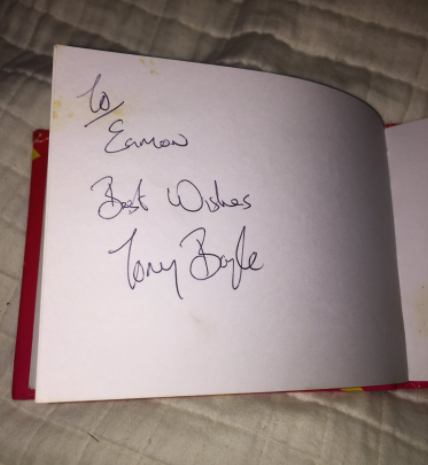 To/
Eamon
Best Wishes
Tony Boyle